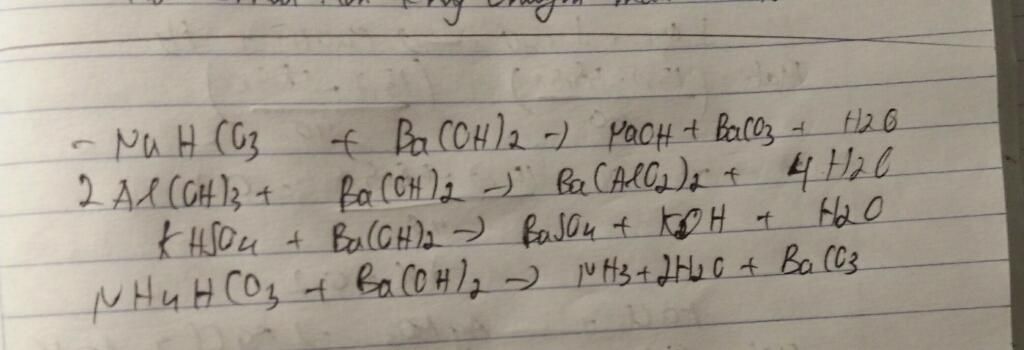 - NaHCO3 + Ba(OH)2 → NaOH + BaCO3 + H2O
2Al(OH)3 + Ba(OH)2 → Ba(AlO2)2 + 4H2O
KHSO4 + Ba(OH)2 → BaSO4 + KOH + H2O
NH4HCO3 + Ba(OH)2 → NH3 + 2H2O + BaCO3